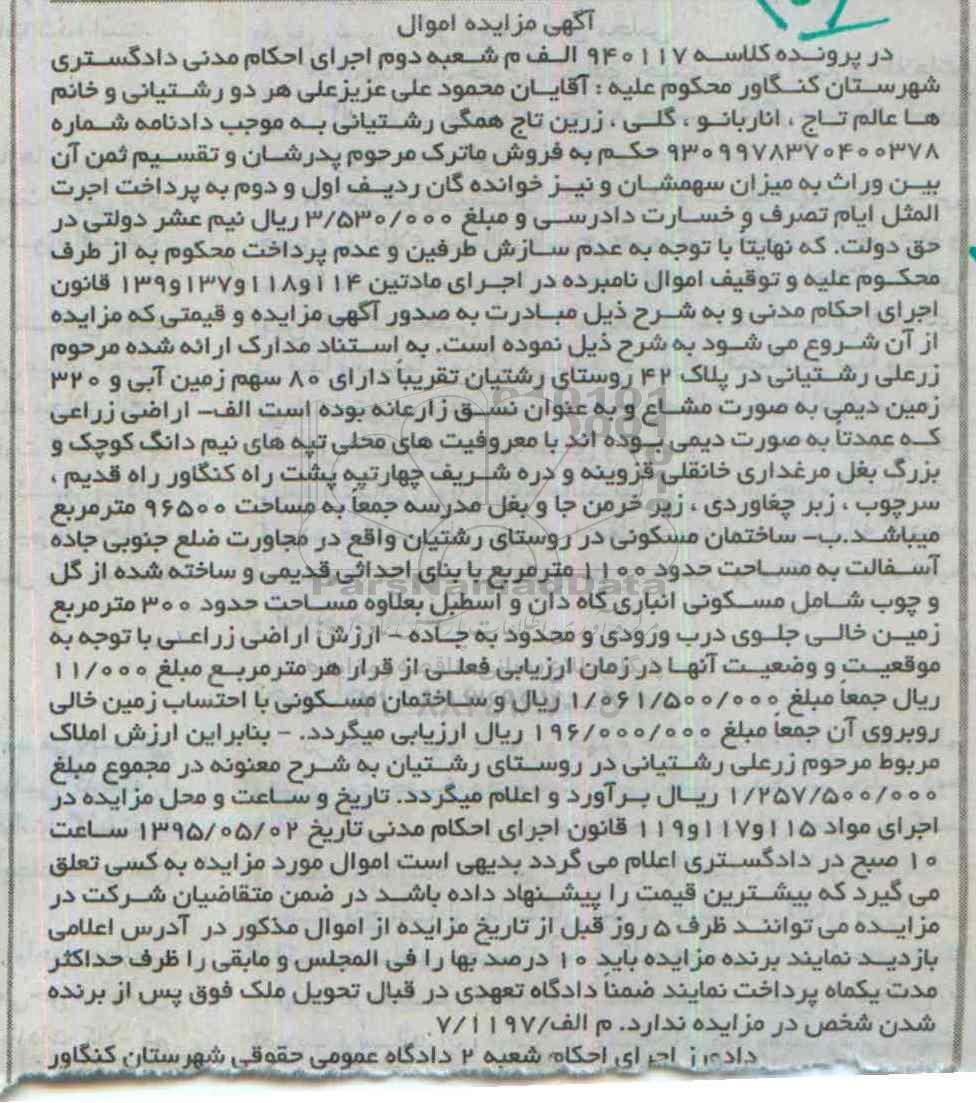 آگهی مزایده اموال
در پرونده کلاسه ۹۴۰۱۱۷ الف م شعبه دوم اجرای احکام مدنی دادگستری
شهرستان کنگاور محکوم علیه : آقایان محمود علی عزیزعلی هر دو رشتیانی و خانم
ها عالم تاج ، اناربانو ، گلی ، زرین تاج همگی رشتیانی به موجب دادنامه شماره
۹۳۰۹۹۷۸۳۷۰۴۰۰۳۷۸ حکم به فروش ماترک مرحوم پدرشان و تقسیم ثمن آن
بین وراث به میزان سهمشان و نیز خوانده گان ردیف اول و دوم به پرداخت اجرت
المثل ایام تصرف و خسارت دادرسی و مبلغ ۳/۵۳۰/۰۰۰ ریال نیم عشر دولتی در
حق دولت. که نهایتاً با توجه به عدم سازش طرفین و عدم پرداخت محکوم به از طرف
محکوم علیه و توقیف اموال نامبرده در اجرای مادتین ۱۱۴و۱۱۸و۱۳۷و۱۳۹ قانون
اجرای احکام مدنی و به شرح ذیل مبادرت به صدور آگهی مزایده و قیمتی که مزایده
از آن شروع می شود به شرح ذیل نموده است. به استناد مدارک ارائه شده مرحوم
زرعلی رشتیانی در پلاک ۴۲ روستای رشتیان تقریباً دارای ۸۰ سهم زمین آبی و ۳۲۰
زمین دیمی به صورت مشاع و به عنوان نسق زارعانه بوده است الف- اراضی زراعی
که عمدتاً به صورت دیمی بوده اند با معروفیت های محلی تپه های نیم دانگ کوچک و
بزرگ بغل مرغداری خانقلی قزوینه و دره شریف چهارتپه پشت راه کنگاور راه قدیم ،
سرچوب ، زبر چغاوردی ، زیر خرمن جا و بغل مدرسه جمعاً به مساحت ۹۶۵۰۰ مترمربع
میباشد.ب- ساختمان مسکونی در روستای رشتیان واقع در مجاورت ضلع جنوبی جاده
آسفالت به مساحت حدود ۱۱۰۰ مترمربع با بنای احداثی قدیمی و ساخته شده از گل
و چوب شامل مسکونی انباری کاه دان و اسطبل بعلاوه مساحت حدود ۳۰۰ مترمربع
زمین خالی جلوی درب ورودی و محدود به جاده - ارزش اراضی زراعی با توجه به
موقعیت و وضعیت آنها در زمان ارزیابی فعلی از قرار هر مترمربع مبلغ ۱۱/۰۰۰
ریال جمعاً مبلغ ۱/۰۶۱/۵۰۰/۰۰۰ ریال و ساختمان مسکونی با احتساب زمین خالی
روبروی آن جمعاً مبلغ ۱۹۶/۰۰۰/۰۰۰ ریال ارزیابی میگردد. - بنابراین ارزش املاک
مربوط مرحوم زرعلی رشتیانی در روستای رشتیان به شرح معنونه در مجموع مبلغ
۱/۲۵۷/۵۰۰/۰۰۰ ریال برآورد و اعلام میگردد. تاریخ و ساعت و محل مزایده در
اجرای مواد ۱۱۵و۱۱۷و۱۱۹ قانون اجرای احکام مدنی تاریخ ۱۳۹۵/۰۵/۰۲ ساعت
۱۰ صبح در دادگستری اعلام می گردد بدیهی است اموال مورد مزایده به کسی تعلق
می گیرد که بیشترین قیمت را پیشنهاد داده باشد در ضمن متقاضیان شرکت در
مزایده می توانند ظرف ۵ روز قبل از تاریخ مزایده از اموال مذکور در آدرس اعلامی
بازدید نمایند برنده مزایده باید ۱۰ درصد بها را فی المجلس و مابقی را ظرف حداکثر
مدت یکماه پرداخت نمایند ضمناً دادگاه تعهدی در قبال تحویل ملک فوق پس از برنده
شدن شخص در مزایده ندارد. م الف/۷/۱۱۹۷
دادورز اجرای احکام شعبه ۲ دادگاه عمومی حقوقی شهرستان کنگاور
ParsNamadData